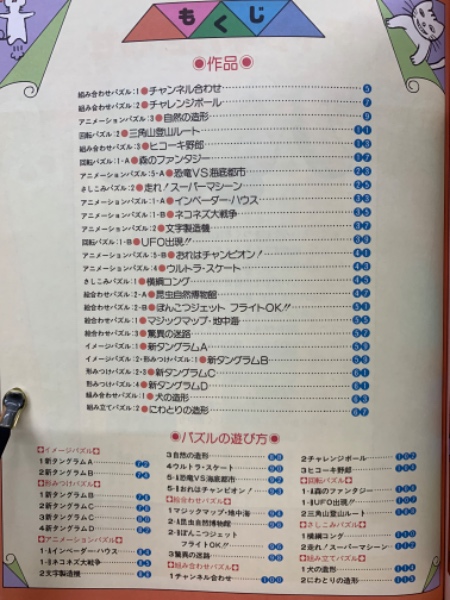 もくじ
●作品●
組み合わせパズル:1●チャンネル合わせ 5
組み合わせパズル:2●チャレンジボール 7
アニメーションパズル:3●自然の造形 9
回転パズル:2●三角山登山ルート 11
組み合わせパズル:3●ヒコーキ野郎 13
回転パズル:1-A●森のファンタジー 17
アニメーションパズル:5-A●恐竜VS海底都市 23
さしこみパズル:2●走れ!スーパーマシーン 25
アニメーションパズル:1-A●インベーダー・ハウス 33
アニメーションパズル:1-B●ネコネズ大戦争 35
アニメーションパズル:2●文字製造機 37
回転パズル:1-B●UFO出現!! 39
アニメーションパズル:5-B●おれはチャンピオン! 41
アニメーションパズル:4●ウルトラ・スケート 43
さしこみパズル:1●横綱コング 45
絵合わせパズル:2-A●昆虫自然博物館
絵合わせパズル:2-B●ぽんこつジェット フライトOK!! 51
絵合わせパズル:1●マジックマップ・地中海 55
絵合わせパズル:3●驚異の迷路 57
イメージパズル:1●新タングラムA 59
イメージパズル:2・形みつけパズル:1●新タングラムB 59
形みつけパズル:2・3●新タングラムC 61
形みつけパズル:4●新タングラムD 61
組み立てパズル:1●犬の造形 63
組み立てパズル:2●にわとりの造形 67
●パズルの遊び方●
イメージパズル
1新タングラムA 72
2新タングラムB 74
形みつけパズル
1新タングラムB 76
2新タングラムC
3新タングラムC 80
4新タングラムD
アニメーションパズル
1-Aインベーダー・ハウス 84
1-Bネコネズ大戦争 85
2文字製造機 86
3自然の造形
4ウルトラ・スケート 90
5-A恐竜VS海底都市 92
5-Bおれはチャンピオン!
絵合わせパズル
1マジックマップ・地中海
2-A昆虫自然博物館
2-Bぽんこつジェット
フライトOK!!
3驚異の迷路
組み合わせパズル
1チャンネル合わせ 100
2チャレンジボール 102
3ヒコーキ野郎
回転パズル
1-A森のファンタジー
1-BUFO出現!! 107
2三角山登山ルート 108
さしこみパズル
1横綱コング 110
2走れ!スーパーマシーン 112
組み立てパズル
1犬の造形 114
2にわとりの造形 115